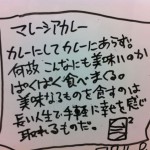 マレーシアカレー
カレーにしてカレーにあらず。
何故こんなにも美味いのか
ぱくぱく食べまくる。
美味なるものを食すのは
長い人生で手軽に幸を感じ
取れるものだ。